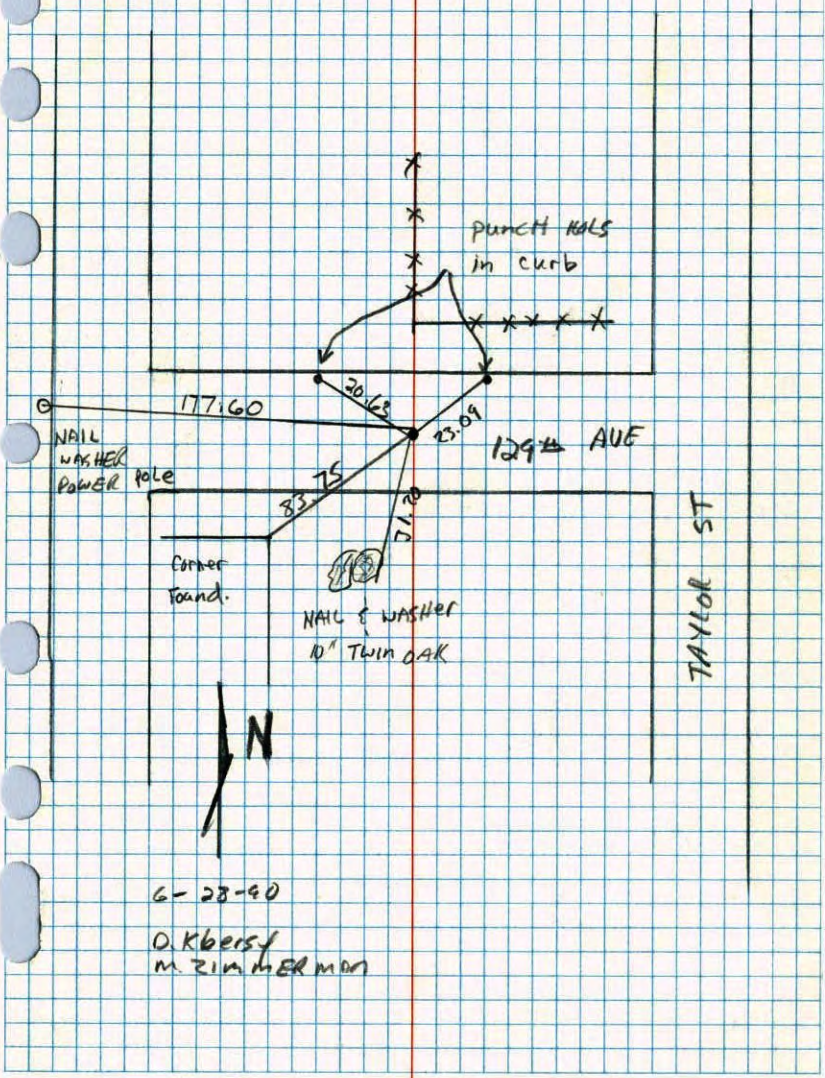 punch hols
in curb
177.60
20.63
23.09
129th AVE
NAIL
WASHER
POWER Pole
83.75
Corner
Found.
NAIL & WASHer
10" Twin OAK
TAYLOR ST
N
6-28-90
M. ZimmERman